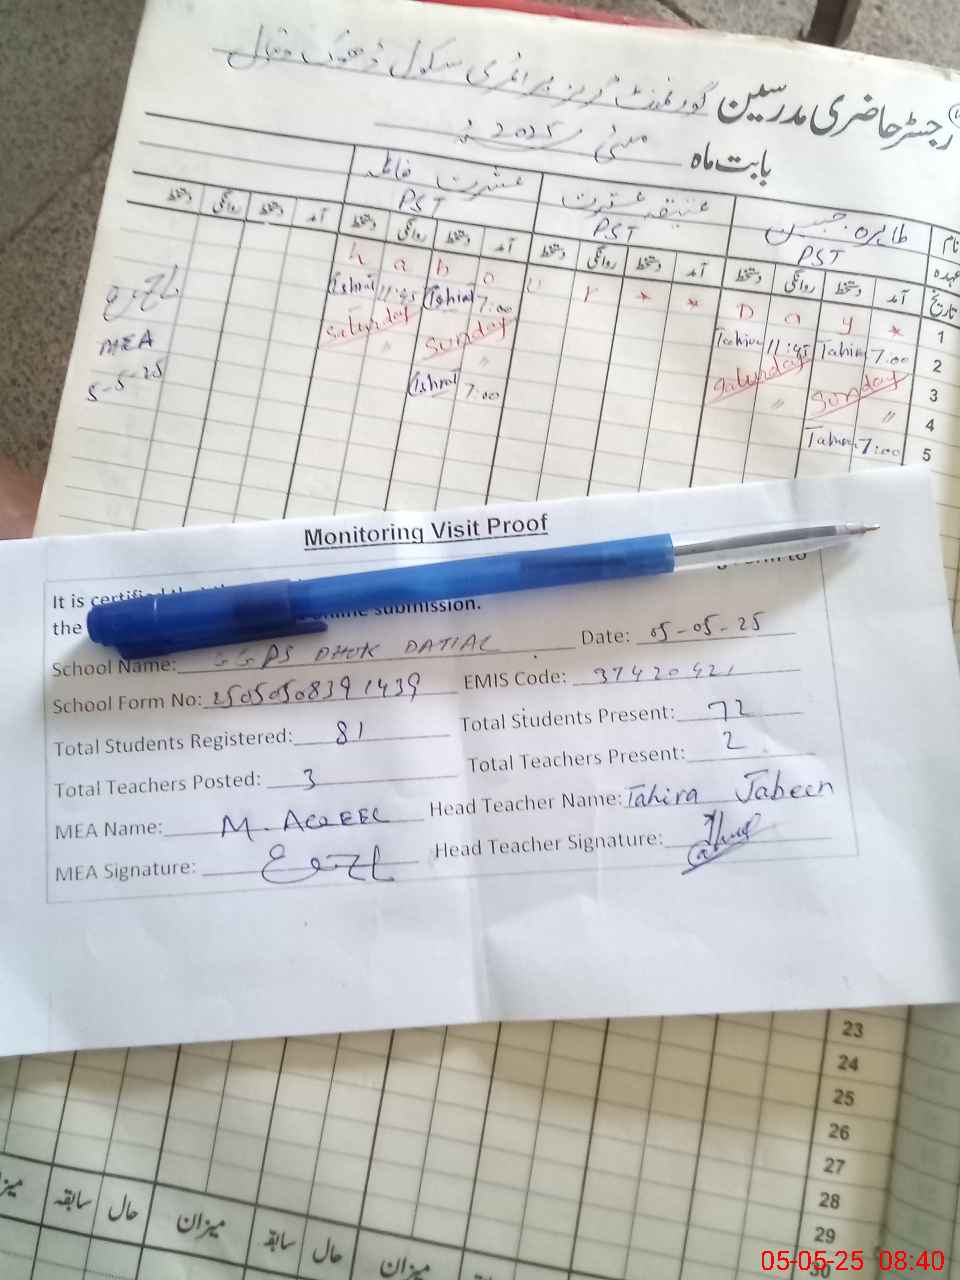 رجسٹر حاضری مدرسین گورنمنٹ گرلز پرائمری سکول ڈھوک
بابت ماہ مئی 2025
نام طاہرہ جبین عشرت فاطمہ
عہدہ PST PST PST
تاریخ آمد دستخط روانگی دستخط آمد دستخط روانگی دستخط آمد دستخط روانگی دستخط آمد دستخط روانگی دستخط
1 * y a D * * r u o b a L
2 7:00 Tahira 11:45 Tahira 7:00 Ishrat 11:45 Ishrat
3 Sunday Saturday Sunday Saturday
4 " " " "
5 7:00 Tahira 7:00 Ishrat
MEA
5-5-25
Monitoring Visit Proof
It is
the submission.
School Name: GGPS DHOK DATIAL Date: 05-05-25
School Form No: 25050508391439 EMIS Code: 37420421
Total Students Registered: 81 Total Students Present: 72
Total Teachers Posted: 3 Total Teachers Present: 2
MEA Name: M. AQEEL Head Teacher Name: Tahira Jabeen
MEA Signature: Head Teacher Signature:
23
24
25
26
27
28
29
30
میزان سابقہ حال میزان سابقہ حال میزان
05-05-25 08:40